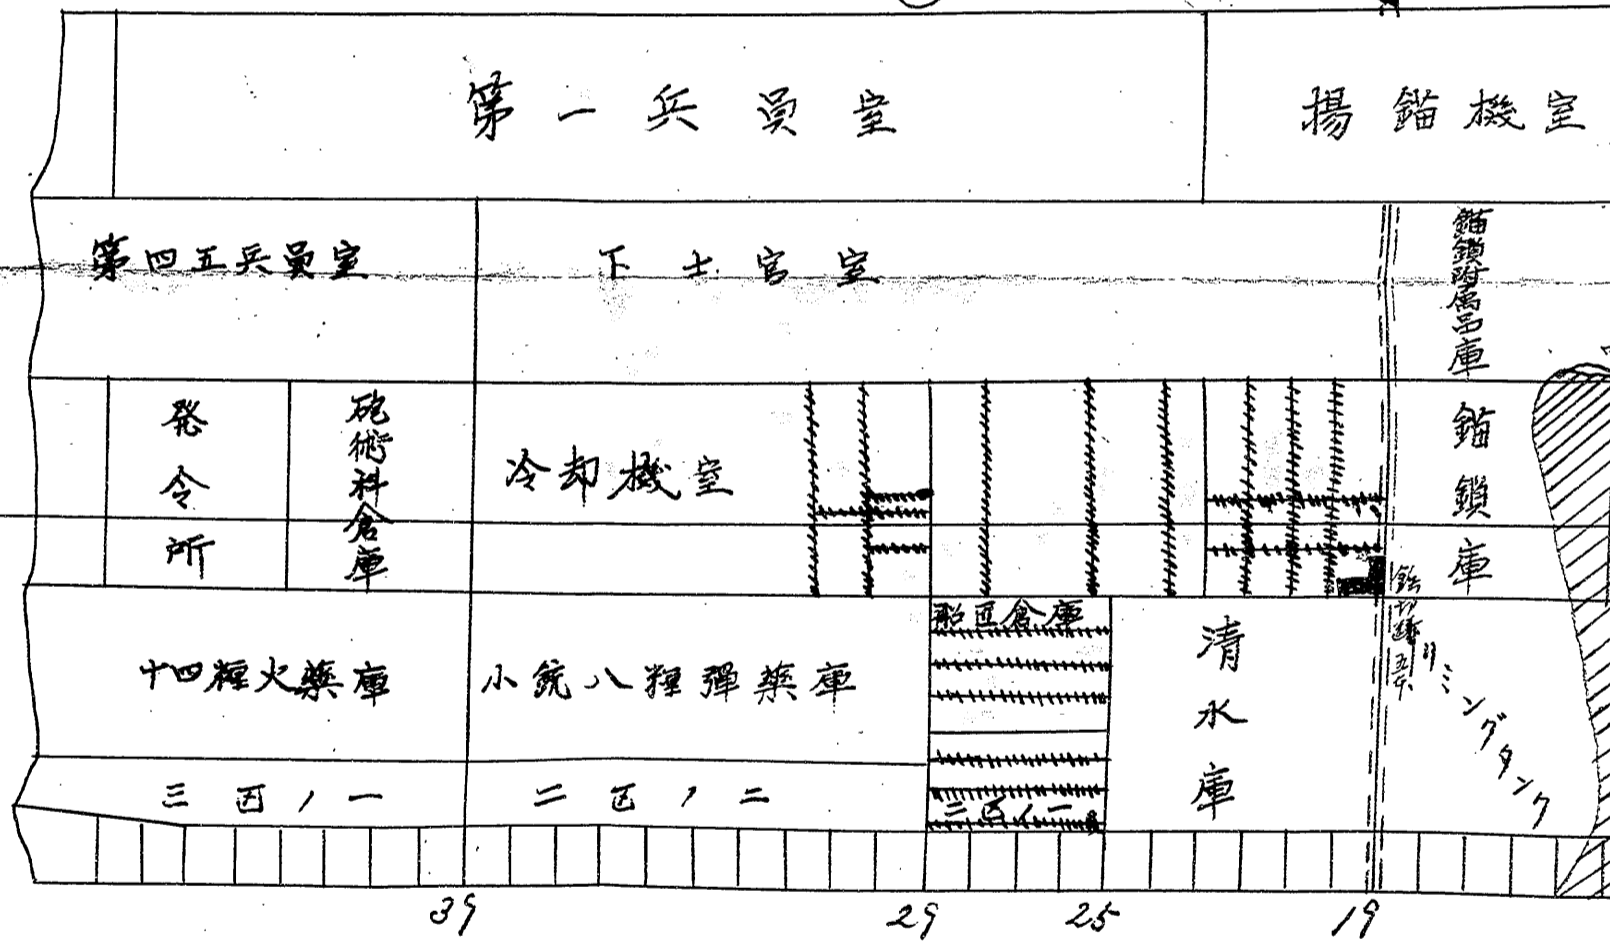 第一兵員室
揚錨機室
第四五兵員室
下士官室
錨鎖附属品庫
発令所
砲術科倉庫
冷却機室
錨鎖庫
十四糎火薬庫
小銃八糎彈薬庫
船匠倉庫
清水庫
トリミングタンク
三区ノ一
二区ノ二
二区ノ一
39
29
25
19